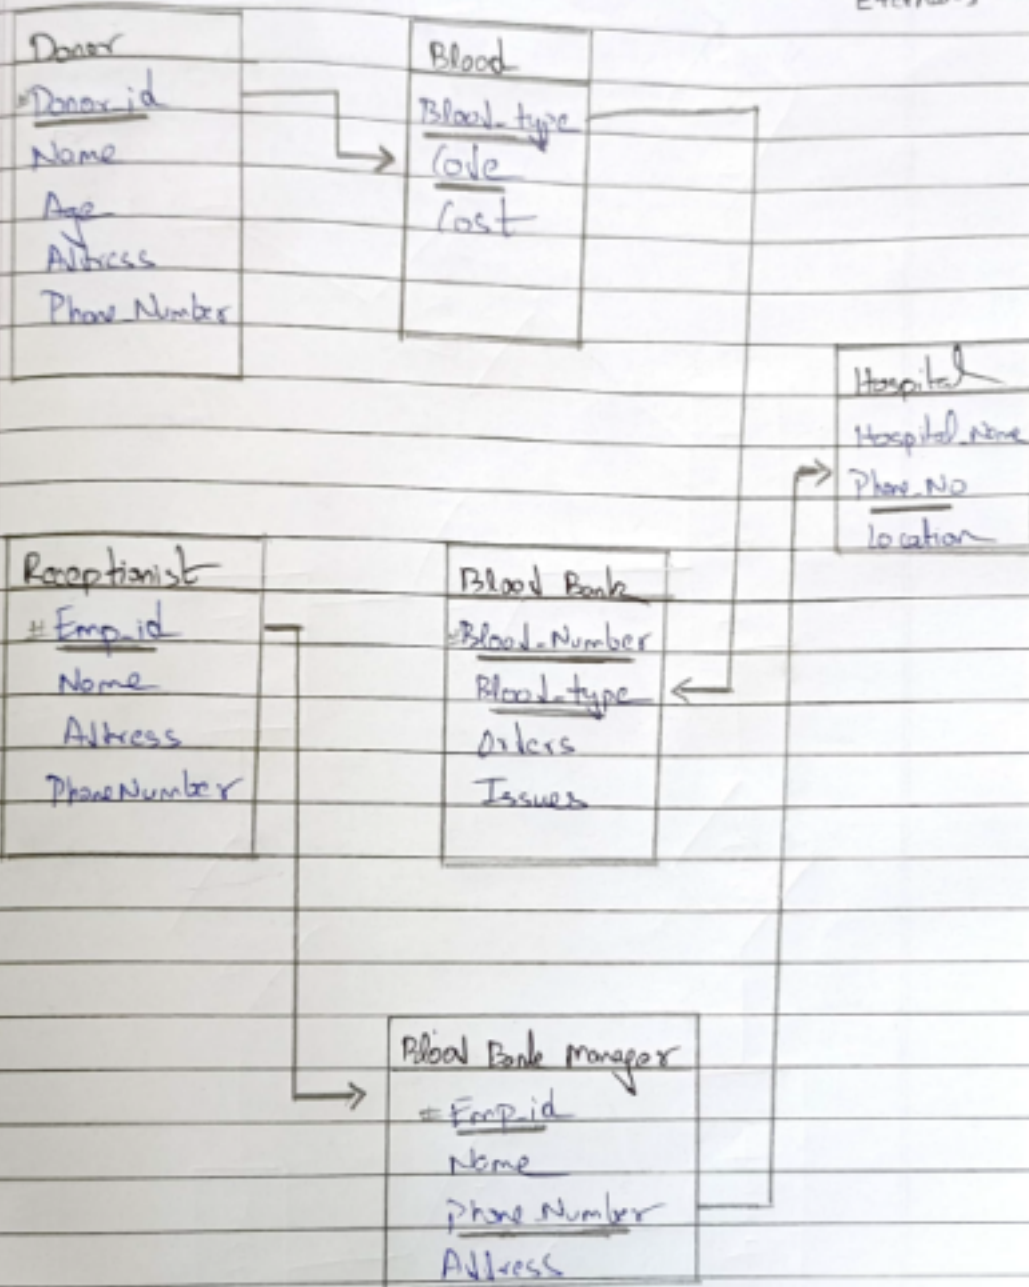 Donor
#Donor_id
Name
Age
Address
Phone_Number
Blood
Blood_type
Code
Cost
Hospital
Hospital_Name
Phone_No
location
Receptionist
#Emp_id
Name
Address
PhoneNumber
Blood Bank
#Blood_Number
Blood_type
Orders
Issues
Blood Bank Manager
#Emp_id
Name
Phone_Number
Address